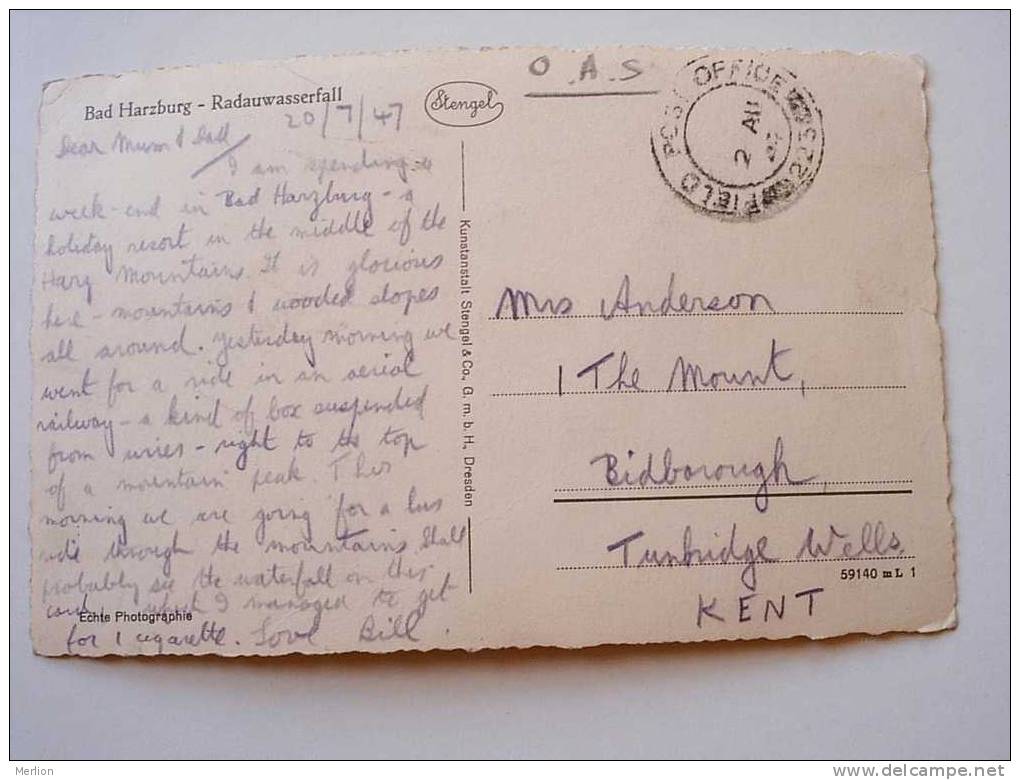 Bad Harzburg - Radauwasserfall
Stengel
O.A.S
FIELD POST OFFICE 225
2 AU
20/7/47
Dear Mum & Dad
I am spending a
week-end in Bad Harzburg - a
holiday resort in the middle of the
Harz Mountains. It is glorious
here - mountains & wooded slopes
all around. Yesterday morning we
went for a ride in an aerial
railway - a kind of box suspended
from wires - right to the top
of a mountain peak. This
morning we are going for a bus
ride through the mountains. Shall
probably see the waterfall on this
card, which I managed to get
for 1 cigarette. Love Bill.
Echte Photographie
Kunstanstalt Stengel & Co., G. m. b. H., Dresden
Mrs Anderson
1 The Mount,
Bidborough,
Tunbridge Wells,
KENT
59140 m L 1
Merlion
http://www.delcampe.net